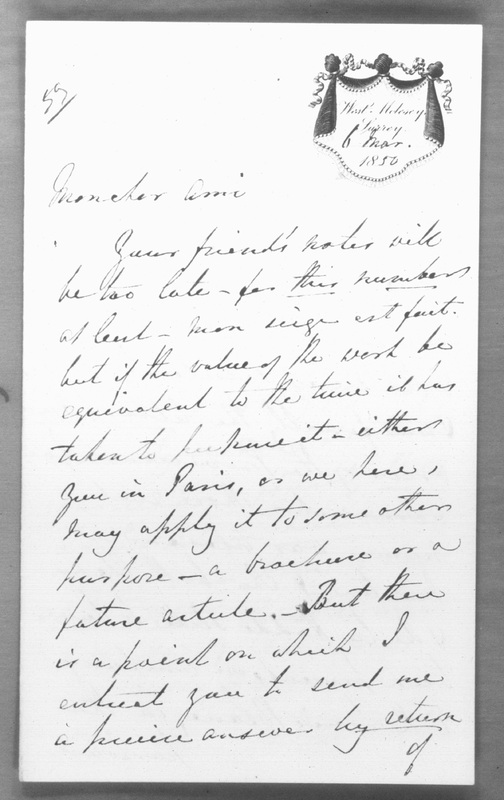 57
West Molesey
Surrey
6 Mar.
1850
Mon cher Ami
Your friend's notes will
be too late - for this number
at least - mon siège est fait.
but if the value of the work be
equivalent to the time it has
taken to prepare it - either
you in Paris, or we here,
may apply it to some other
purpose - a brochure or a
future article. - But there
is a point on which I
entreat you to send me
a precise answer by return
of